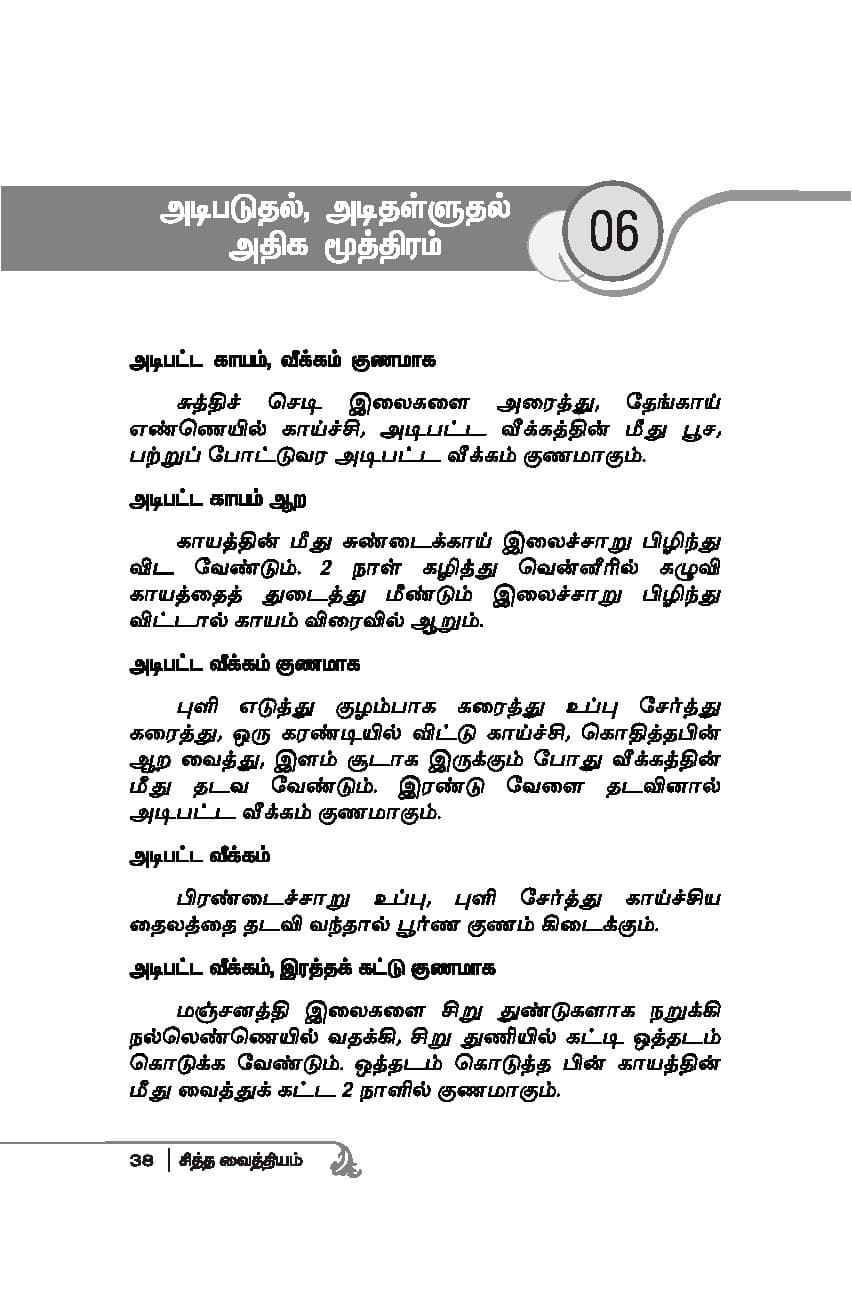 அடிபடுதல், அடிதள்ளுதல்
அதிக மூத்திரம்
06
அடிபட்ட காயம், வீக்கம் குணமாக
சுத்திச் செடி இலைகளை அரைத்து, தேங்காய்
எண்ணெயில் காய்ச்சி, அடிபட்ட வீக்கத்தின் மீது பூச,
பற்றுப் போட்டுவர அடிபட்ட வீக்கம் குணமாகும்.
அடிபட்ட காயம் ஆற
காயத்தின் மீது சுண்டைக்காய் இலைச்சாறு பிழிந்து
விட வேண்டும். 2 நாள் கழித்து வென்னீரில் கழுவி
காயத்தைத் துடைத்து மீண்டும் இலைச்சாறு பிழிந்து
விட்டால் காயம் விரைவில் ஆறும்.
அடிபட்ட வீக்கம் குணமாக
புளி எடுத்து குழம்பாக கரைத்து உப்பு சேர்த்து
கரைத்து, ஒரு கரண்டியில் விட்டு காய்ச்சி, கொதித்தபின்
ஆற வைத்து, இளம் சூடாக இருக்கும் போது வீக்கத்தின்
மீது தடவ வேண்டும். இரண்டு வேளை தடவினால்
அடிபட்ட வீக்கம் குணமாகும்.
அடிபட்ட வீக்கம்
பிரண்டைச்சாறு உப்பு, புளி சேர்த்து காய்ச்சிய
தைலத்தை தடவி வந்தால் பூர்ண குணம் கிடைக்கும்.
அடிபட்ட வீக்கம், இரத்தக் கட்டு குணமாக
மஞ்சனத்தி இலைகளை சிறு துண்டுகளாக நறுக்கி
நல்லெண்ணெயில் வதக்கி, சிறு துணியில் கட்டி ஒத்தடம்
கொடுக்க வேண்டும். ஒத்தடம் கொடுத்த பின் காயத்தின்
மீது வைத்துக் கட்ட 2 நாளில் குணமாகும்.
38 | சித்த வைத்தியம்